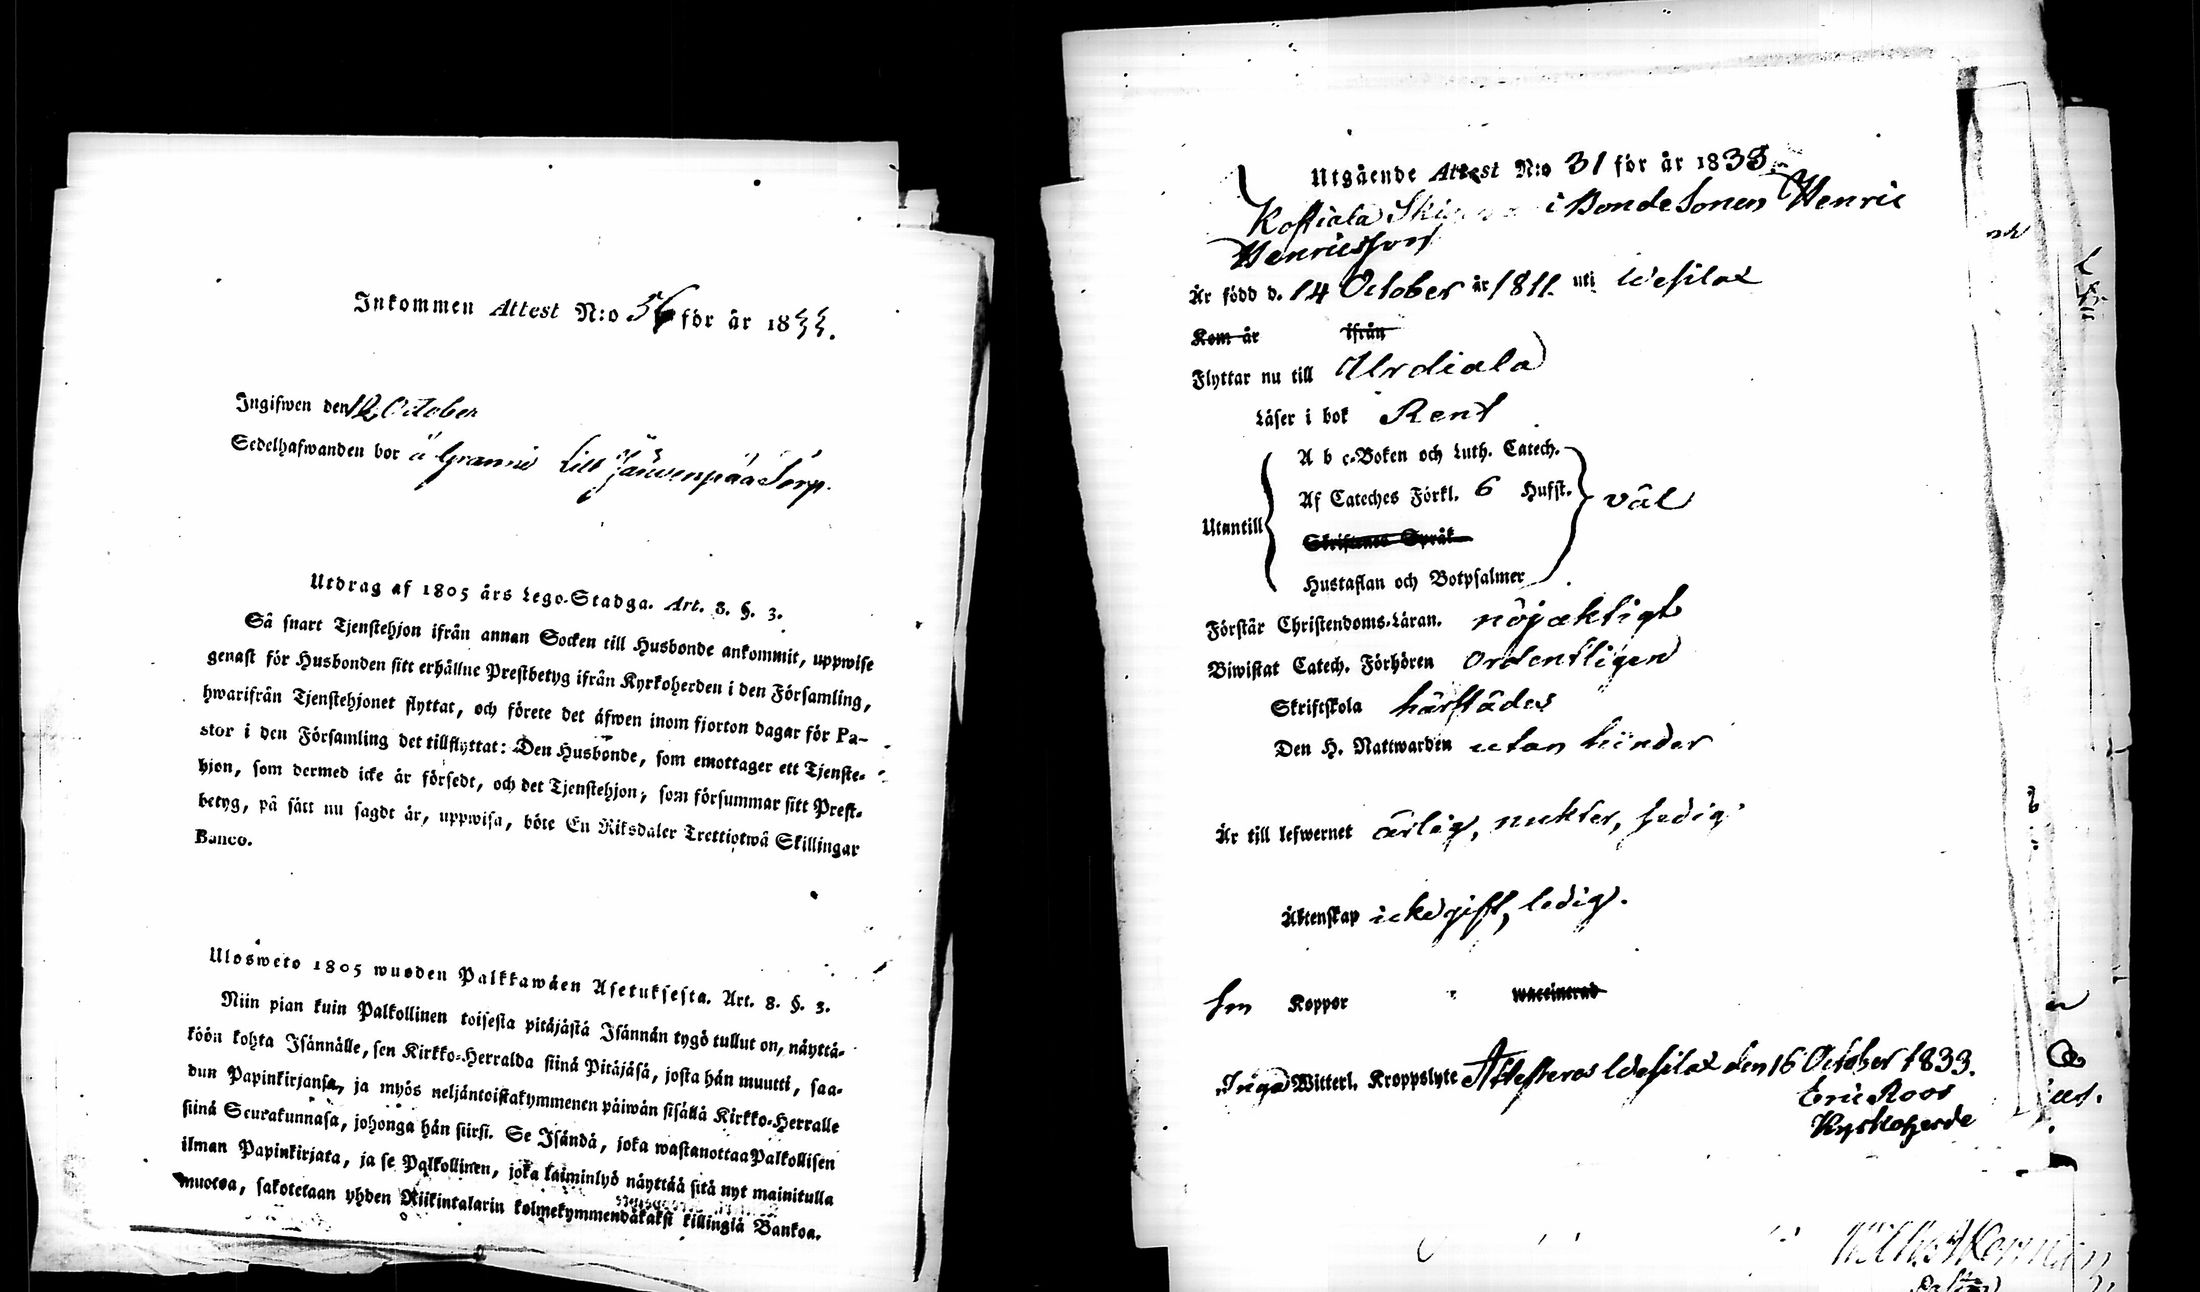 Inkommen Attest N:o 56 för år 1833.
Ingifwen den 12 October
Sedelhafwanden bor å Granni till Järwenpää Torp.
Utdrag af 1805 års Lego-Stadga. Art. 8. §. 3.
Så snart Tjenstehjon ifrån annan Socken till Husbonde ankommit, uppwise
genast för Husbonden sitt erhållne Prestbetyg ifrån Kyrkoherden i den Församling,
hwarifrån Tjenstehjonet flyttat, och förete det äfwen inom fjorton dagar för Pa-
stor i den Församling det tillflyttat: Den Husbonde, som emottager ett Tjenste-
hjon, som dermed icke är försedt, och det Tjenstehjon, som försummar sitt Prest-
betyg, på sätt nu sagdt är, uppwisa, böte En Riksdaler Trettiotwå Skillingar
Banco.
Ulosweto 1805 wuoden Palkkawäen Asetuksesta. Art. 8. §. 3.
Niin pian kuin Palkollinen toisesta pitäjästä Isännän tygö tullut on, näyttä-
köön kohta Isännälle, sen Kirkko-Herralda siinä Pitäjäsä, josta hän muutti, saa-
dun Papinkirjansa, ja myös neljäntoistakymmenen päiwän sisällä Kirkko-Herralle
siinä Seurakunnasa, johonga hän siirsi. Se Isändä, joka wastanottaa Palkollisen
ilman Papinkirjata, ja se Palkollinen, joka laiminlyö näyttää sitä nyt mainitulla
muotoa, sakotetaan yhden Riikintalarin kolmekymmendäkaksi killingiä Bankoa.
Utgående Attest N:o 31 för år 1833.
i Bonde Sonen Henric
Henricsson
Är född d. 14 October år 1811. uti Wesilax
Kom år ifrån
Flyttar nu till Urdiala
Läser i bok Rent
A b c-Boken och Luth. Catech.
Af Cateches Förkl. 6 Hufst. väl
Utantill
Skriftenes Språk
Hustaflan och Botpsalmer
Förstår Christendoms-Läran. nöjaktigt
Biwistat Catech. Förhören Ordentligen
Skriftskola härstädes
Den H. Nattwarden utan hinder
Är till lefwernet ärlig, nukter, sedig
Äktenskap icke gift, ledig.
Koppor waccinerad
Inga Witterl. Kroppslyte Attesteras Wesilax den 16 October 1833.
Eric Roos
Kyrkoherde